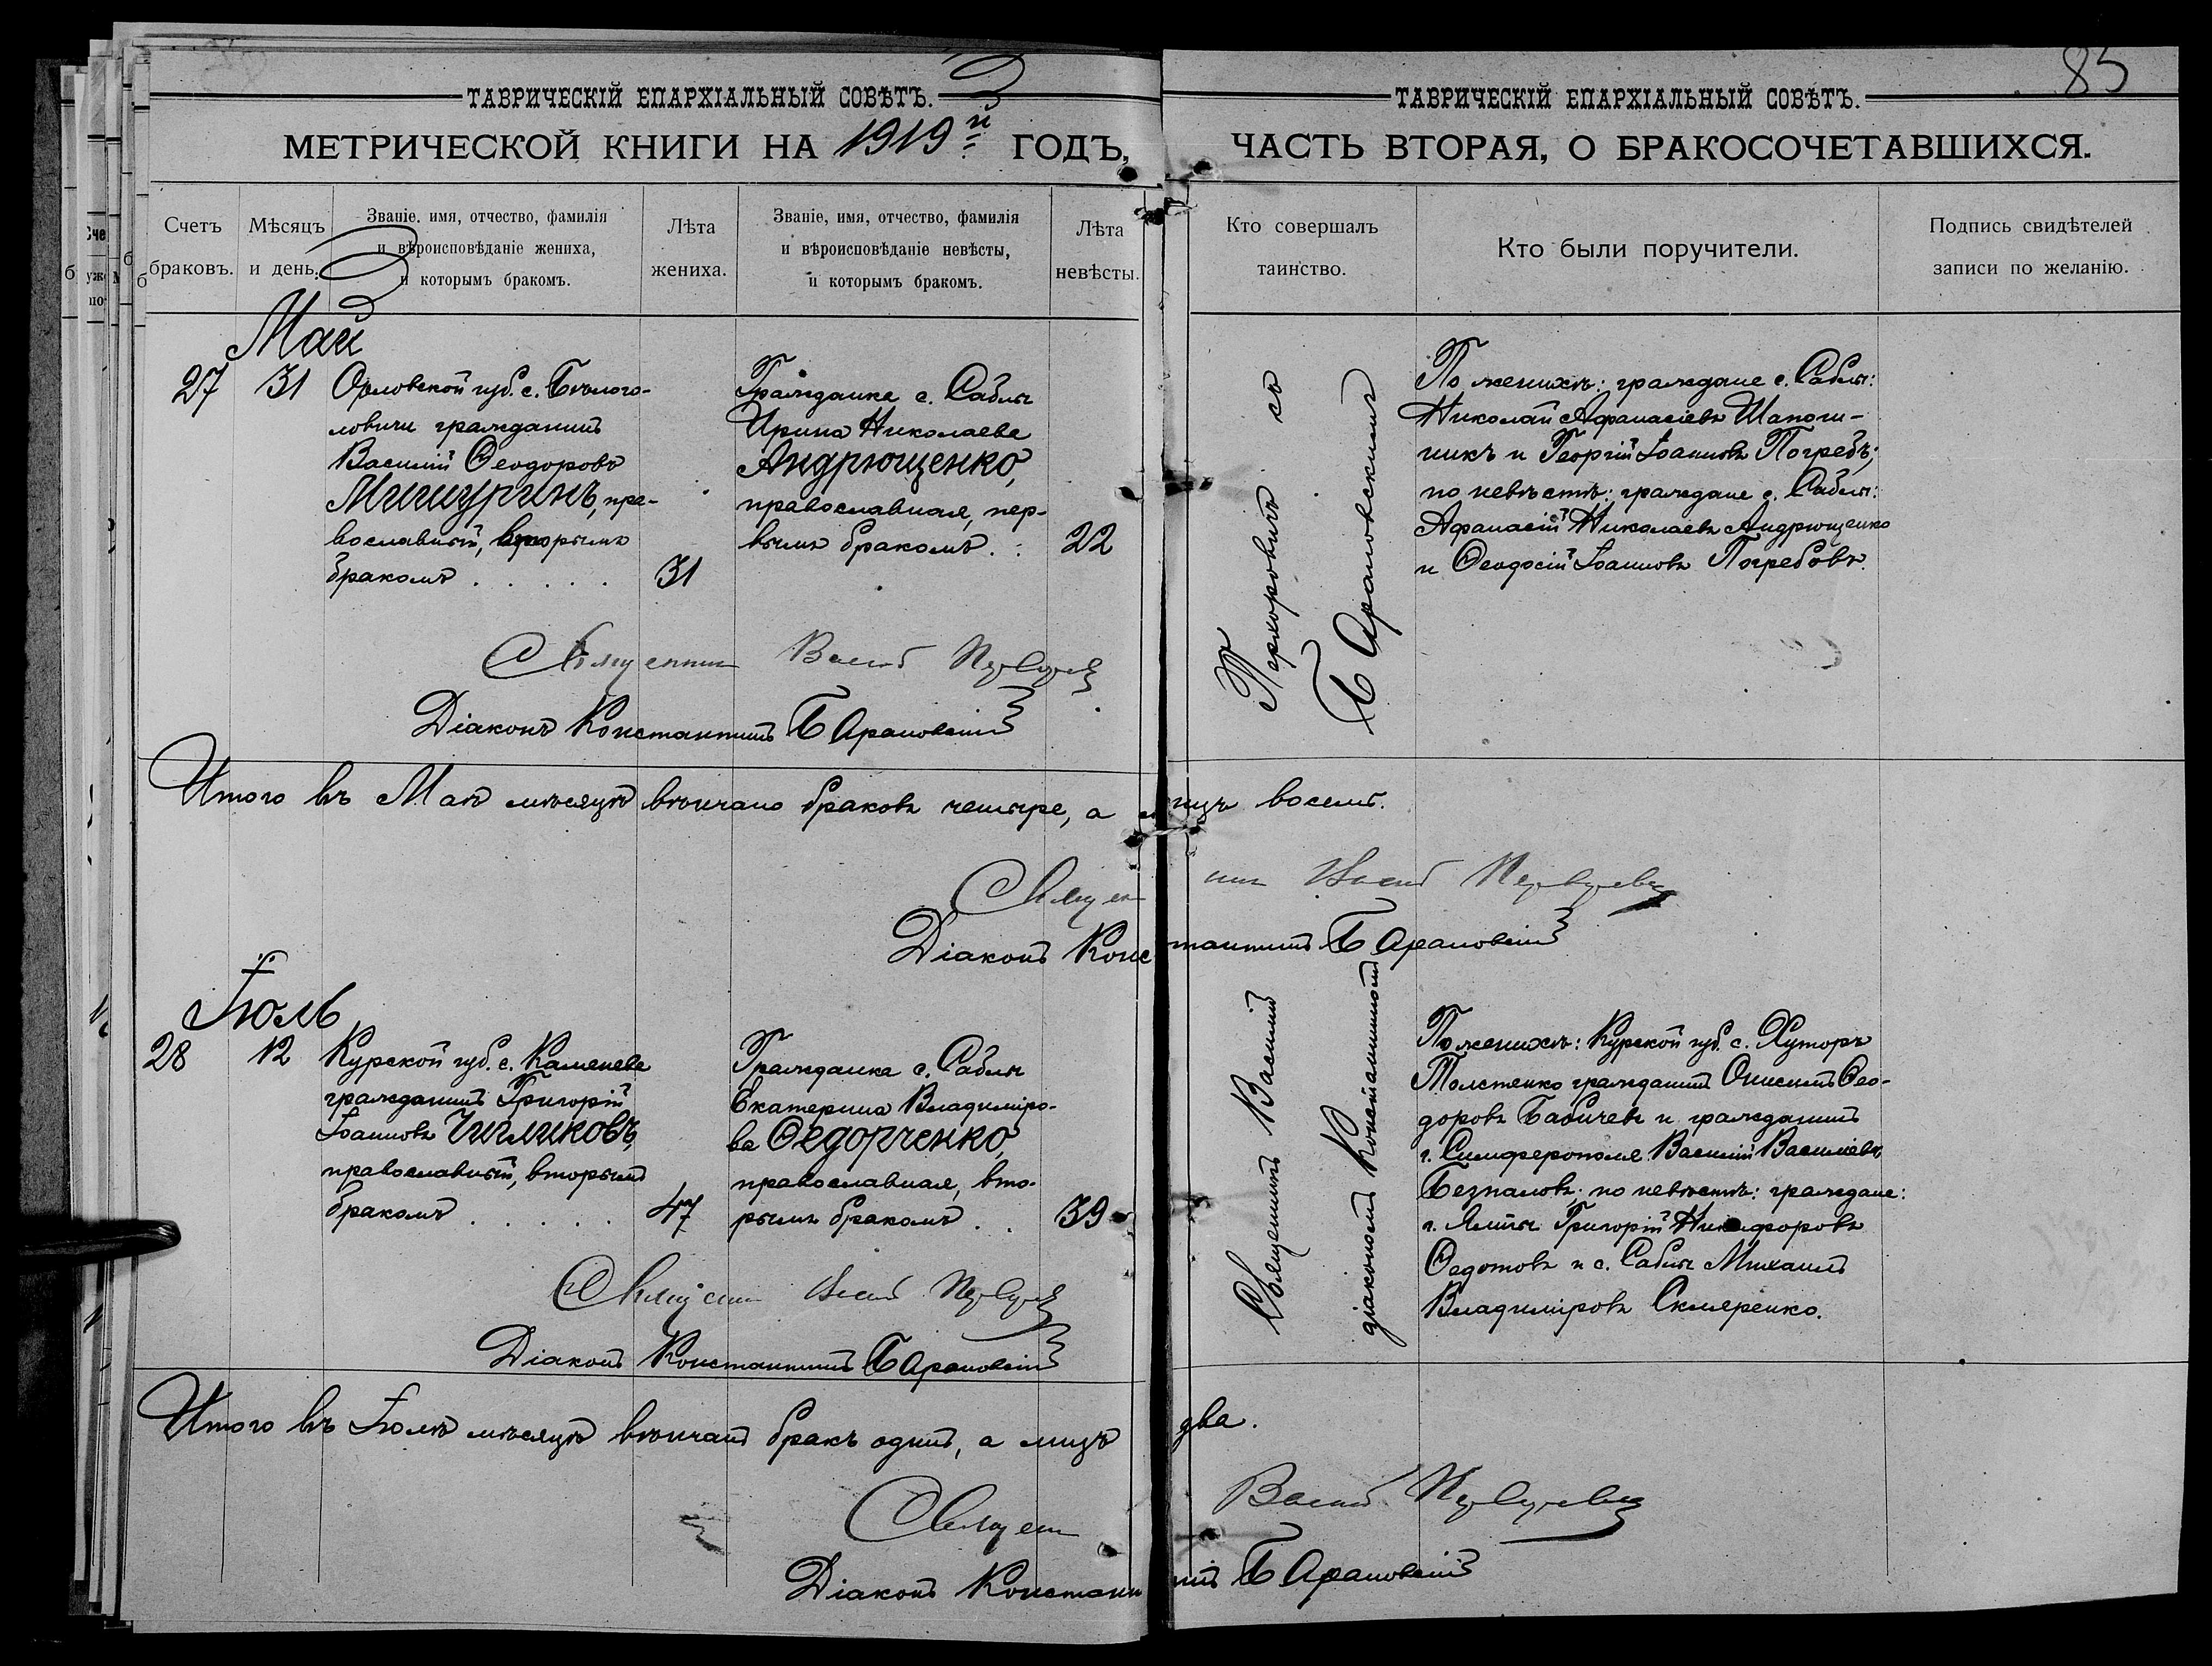 85
ТАВРИЧЕСКІЙ ЕПАРХІАЛЬНЫЙ СОВѢТЪ.
ТАВРИЧЕСКІЙ ЕПАРХІАЛЬНЫЙ СОВѢТЪ.
МЕТРИЧЕСКОЙ КНИГИ НА 1919й ГОДЪ,
ЧАСТЬ ВТОРАЯ, О БРАКОСОЧЕТАВШИХСЯ.
Счетъ браковъ.
Мѣсяцъ и день.
Званіе, имя, отчество, фамилія
и вѣроисповѣданіе жениха,
и которымъ бракомъ.
Лѣта жениха.
Званіе, имя, отчество, фамилія
и вѣроисповѣданіе невѣсты,
и которымъ бракомъ.
Лѣта невѣсты.
Кто совершалъ таинство.
Кто были поручители.
Подпись свидѣтелей
записи по желанію.
Май
27
31
Орловской губ. с. Бѣлого-
ловичи гражданинъ
Василій Ѳеодоровъ
Мишуринъ, пра-
вославный, вторымъ
бракомъ . . . . .
31
Гражданка с. Саблы
Ирина Николаева
Андрющенко,
православная, пер-
вымъ бракомъ. .
22
съ
Барановскимъ
По женихѣ: граждане с. Саблы:
Николай Афанасіевъ Шапош-
никъ и Георгій Іоанновъ Погребъ;
по невѣстѣ: граждане с. Саблы:
Афанасій Николаевъ Андрющенко
и Ѳеодосій Іоанновъ Погребовъ.
Священникъ Василій
Діаконъ Константинъ Барановскій
Итого въ Маѣ мѣсяцѣ вѣнчано браковъ четыре, а лицъ восемь.
Священник Василій
Діаконъ Константинъ Барановскій
Іюль
28
12
Курской губ. с. Каменева
гражданинъ Григорій
Іоанновъ Чигликовъ,
православный, вторымъ
бракомъ . . . . .
47
Гражданка с. Саблы
Екатерина Владиміро-
ва Ѳедорченко,
православная, вто-
рымъ бракомъ . .
39
Священникъ Василій
діакономъ Константиномъ
По женихѣ: Курской губ. с. Хуторъ
Толстенко гражданинъ Онисимъ Ѳео-
доровъ Бабичевъ и гражданинъ
г. Симферополя Василій Васильевъ
Безпаловъ; по невѣстѣ: граждане:
г. Ялты Григорій Никифоровъ
Ѳедотовъ и с. Саблы Михаилъ
Владиміровъ Скляренко.
Священник Василій
Діаконъ Константинъ Барановскій
Итого въ Іюлѣ мѣсяцѣ вѣнчанъ бракъ одинъ, а лицъ два.
Священ Василій
Діаконъ Константинъ Барановскій